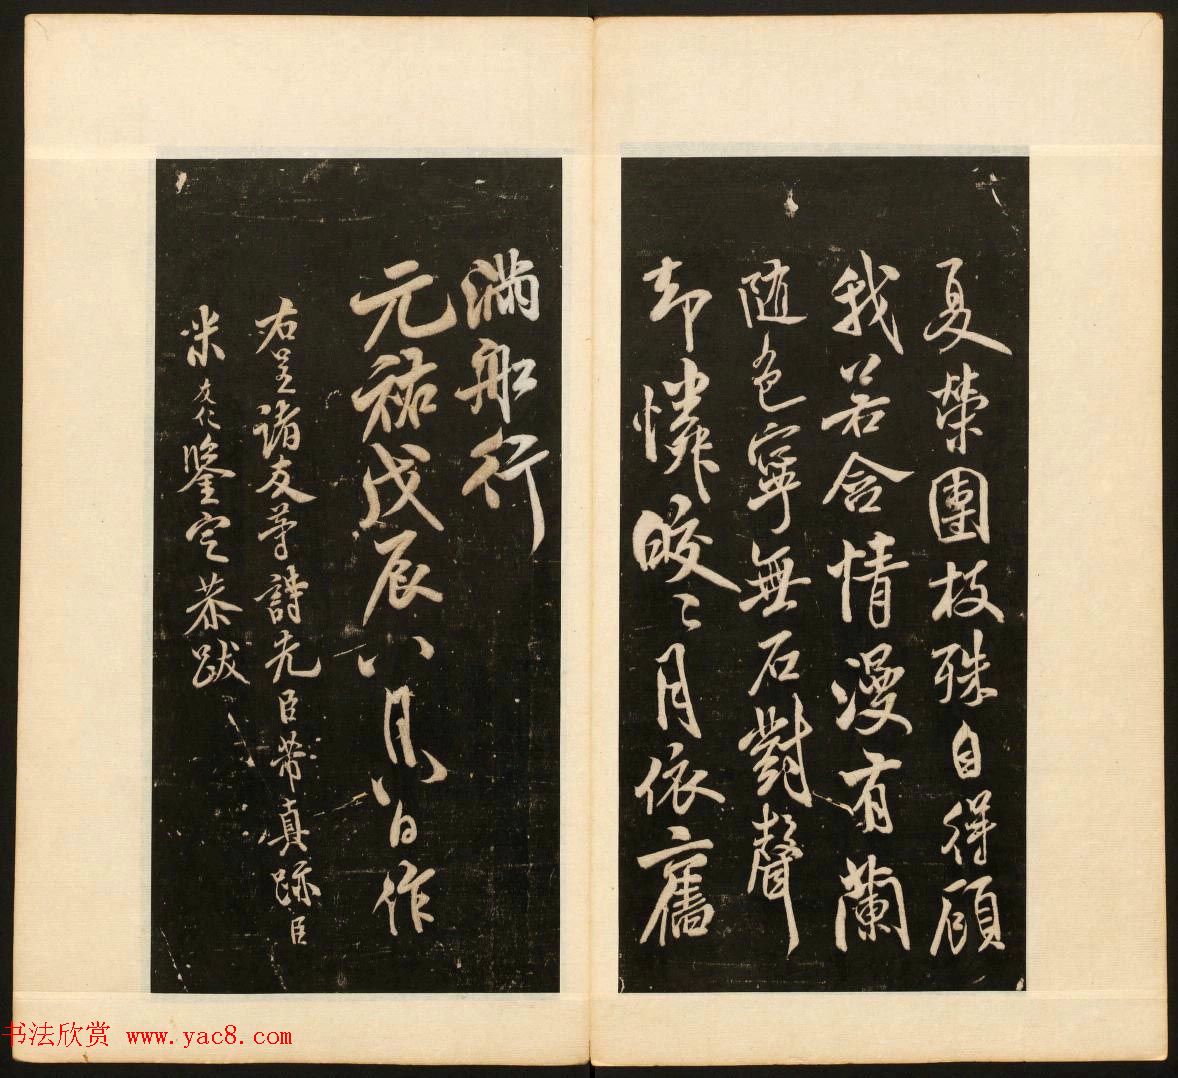 夏榮團枝殊自得顧
我若含情漫有蘭
隨色寧無石對聲
却憐皎〻月依舊
滿船行
元祐戊辰八月八日作
右呈諸友等詩先臣芾真跡臣
米友仁鑒定恭跋
书法欣赏 www.yac8.com